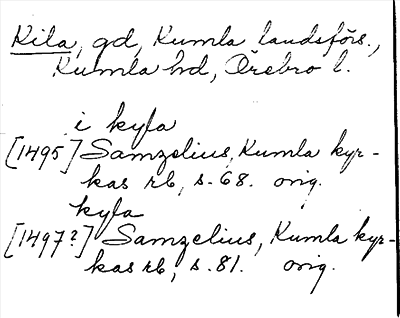 Kila, gd, Kumla landsförs.,
Kumla hd, Örebro l.
i kyla
[1495] Samzelius, Kumla kyr-
kas rb, s. 68. orig.
kyla
[1497?] Samzelius, Kumla kyr-
kas rb, s. 81. orig.